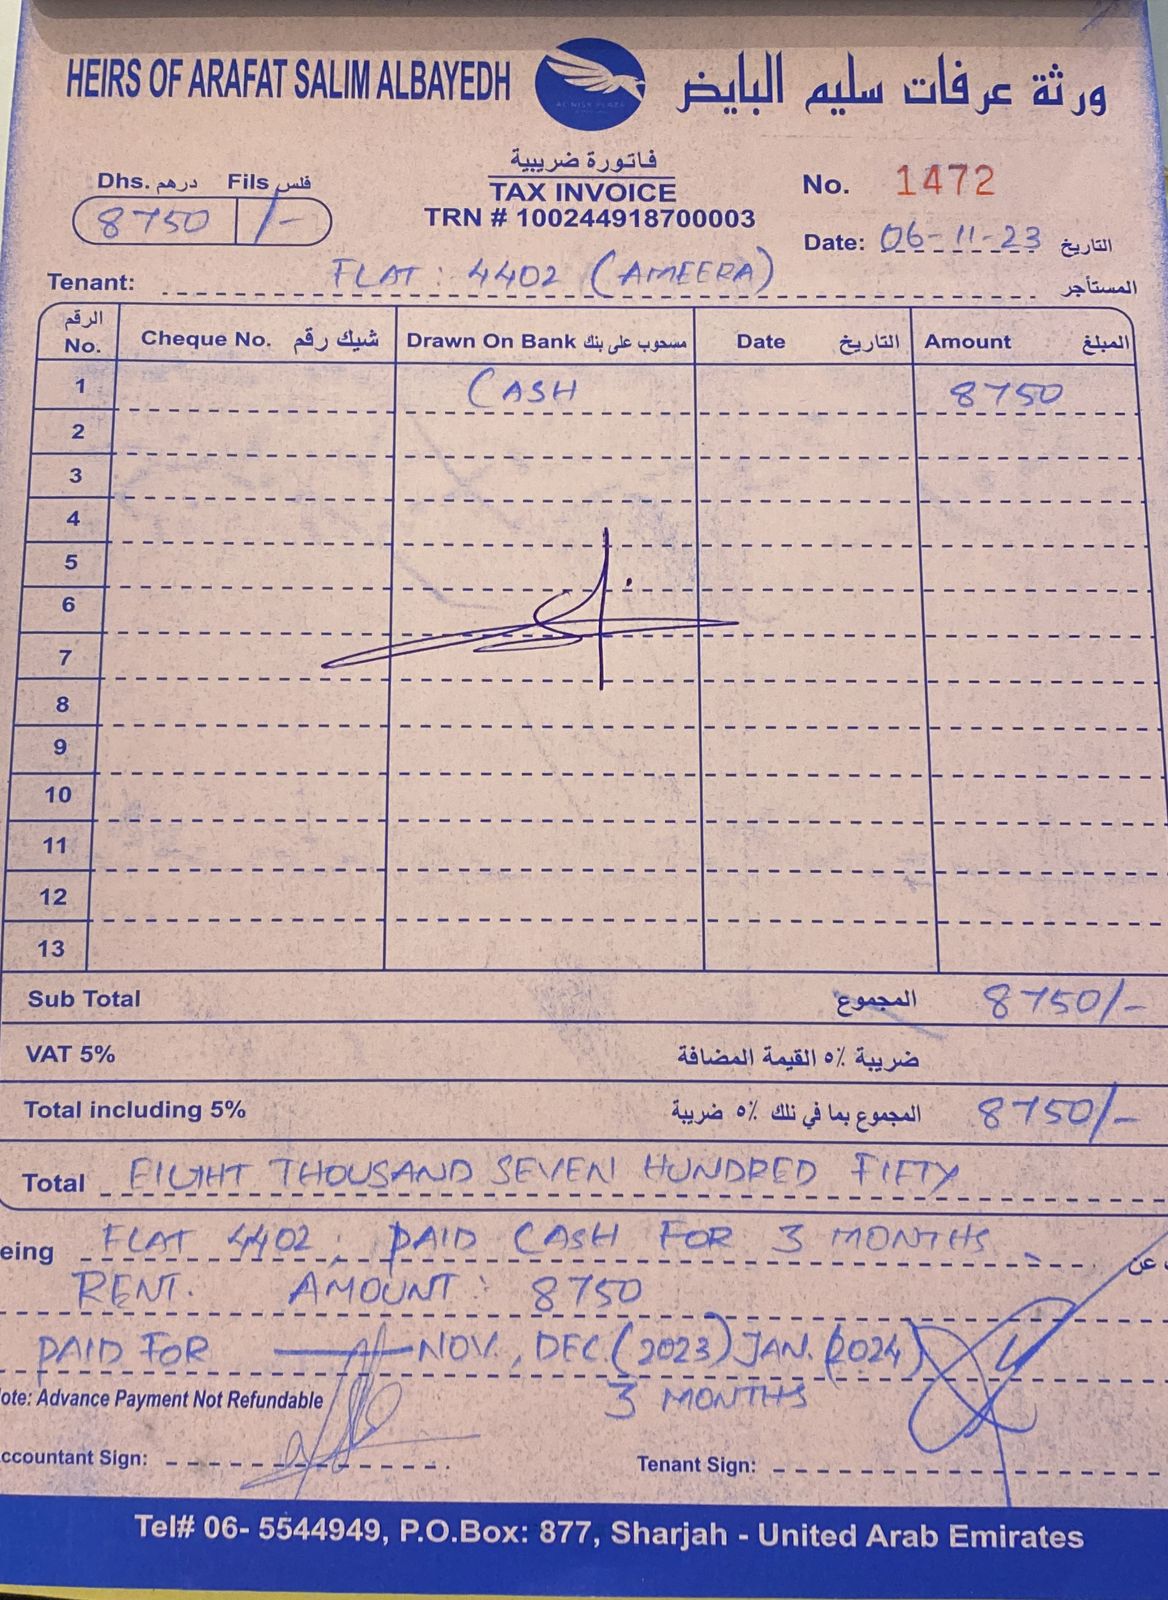 HEIRS OF ARAFAT SALIM ALBAYEDH ورثة عرفات سليم البايض
فاتورة ضريبية
Dhs. درهم Fils فلس TAX INVOICE No. 1472
8750 /- TRN # 100244918700003
Date: 06-11-23 التاريخ
Tenant: FLAT: 4402 (AMEERA) المستأجر
الرقم No. Cheque No. شيك رقم Drawn On Bank مسحوب على بنك Date التاريخ Amount المبلغ
1 CASH 8750
2
3
4
5
6
7
8
9
10
11
12
13
Sub Total المجموع 8750/-
VAT 5% ضريبة ٥٪ القيمة المضافة
Total including 5% المجموع بما في ذلك ٥٪ ضريبة 8750/-
Total EIGHT THOUSAND SEVEN HUNDRED FIFTY
eing FLAT 4402; PAID CASH FOR 3 MONTHS عن
RENT. AMOUNT: 8750
PAID FOR NOV., DEC. (2023) JAN. (2024)
ote: Advance Payment Not Refundable 3 MONTHS
ccountant Sign: Tenant Sign:
Tel# 06- 5544949, P.O.Box: 877, Sharjah - United Arab Emirates